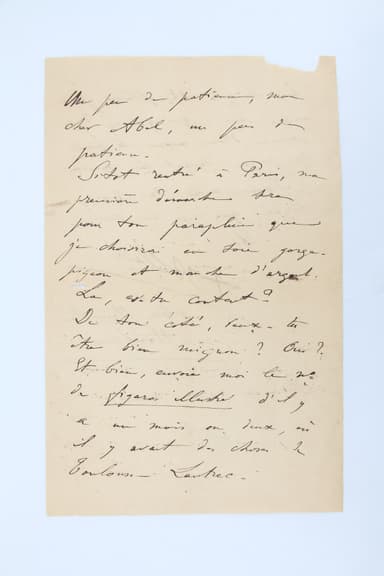 Un peu de patience, mon
cher Abel, un peu de
patience.
Sitôt rentré à Paris, ma
première démarche sera
pour ton parapluie que
je choisirai en soie gorge-
pigeon et manche d'argent.
Là, es-tu content ?
De ton côté, veux-tu
être bien mignon ? Oui ?
Et bien, envoie moi le no
du figaro illustré d'il y
a un mois ou deux, où
il y avait des choses de
Toulouse Lautrec.